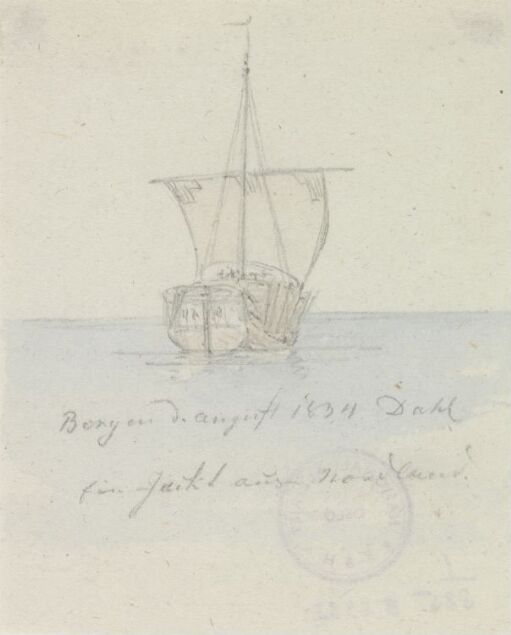 Bergen d. august 1834 Dahl
Ein Jackt aus Nordland.